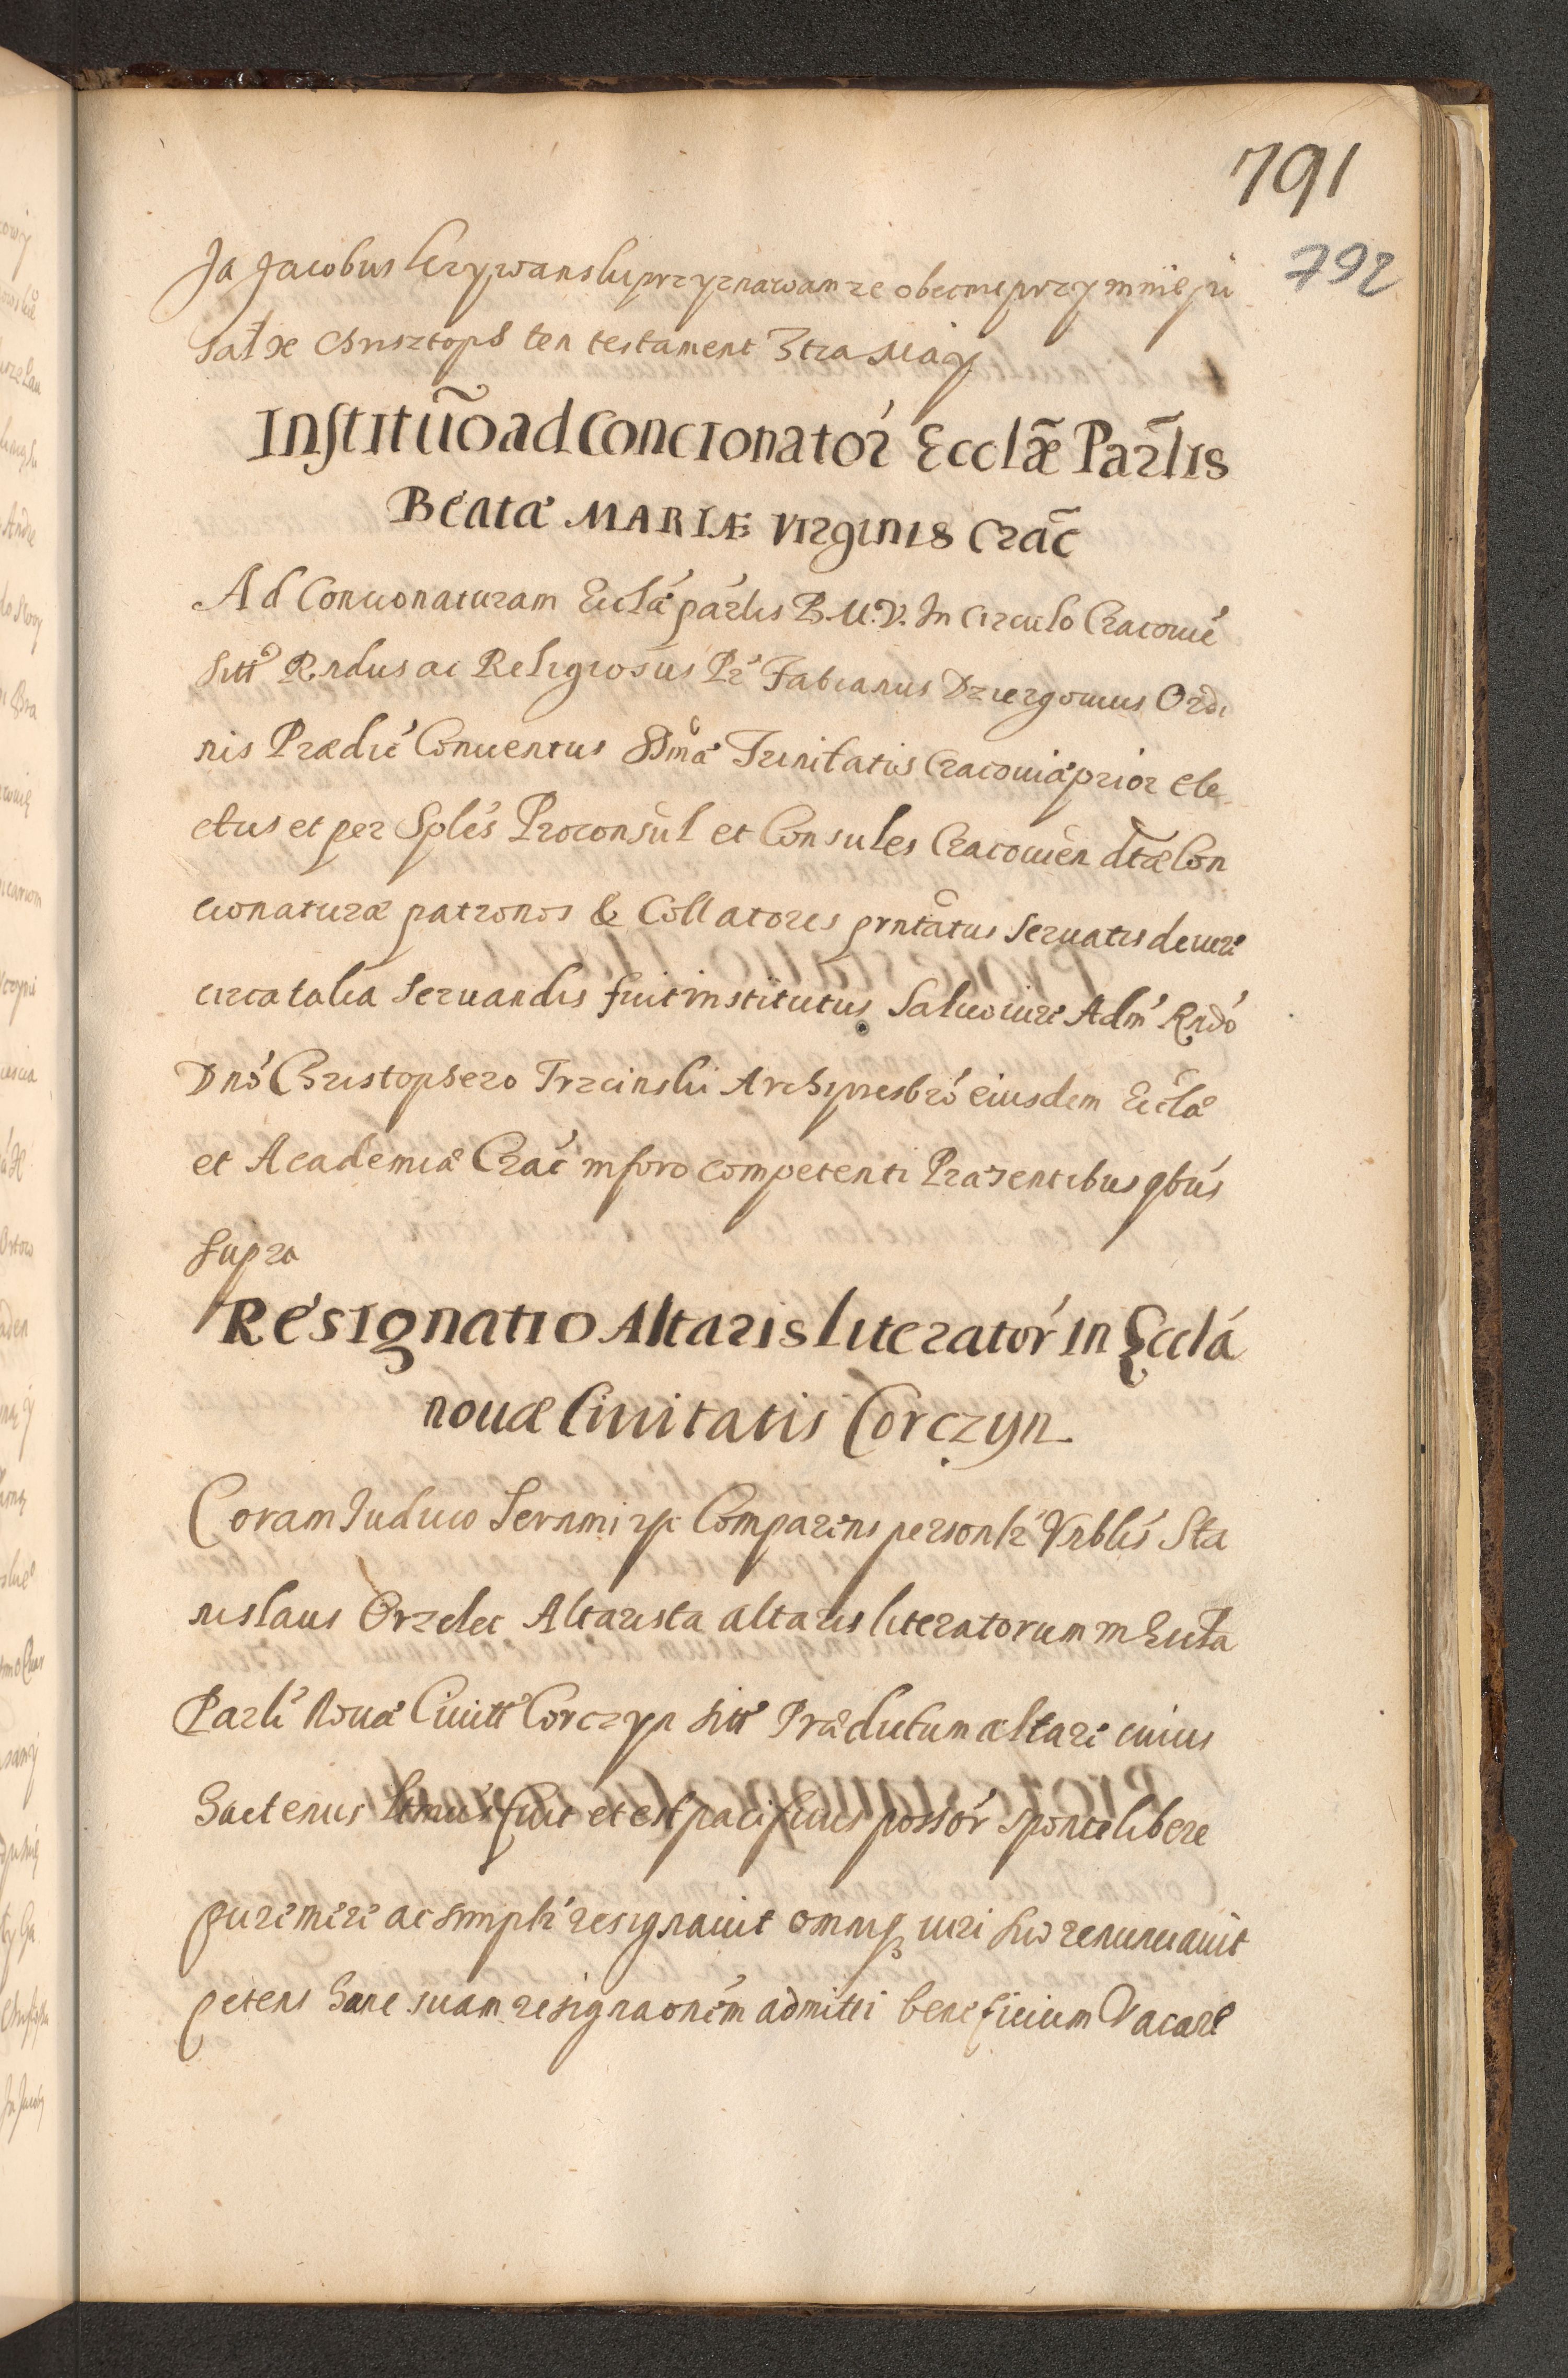 791
792
Ja Jacobus krzywanski przyznawam ze obecnie przy mnie pi
sał xe Chrisztoph ten testament 3tia Maÿ
Institũo ad Concionatór Ecclæ̃ Par̃lis
Beatæ MARIÆ Virginis Crac̃
Ad Concionaturam Ecclæ párlis B.M.V. In Circulo Cracovié
sitt Rndus ac Religiosus Pr Fabianus Dziergovius Ordi
nis Prædić Conventus SSmæ Trinitatis Cracoviæ prior ele
ctus et per Splés Proconsul et Consules Cracovien dtæ Con
cionaturæ patronos & Collatores prntatus servatis de iure
circa talia servandis fuit institutus salvo iure Adm Rndó
Dnó Christophero Trzcinski Archipresbró eiusdem Ecclæ
et Academiæ Crać in foro competenti Præsentibus qbús
supra
Resignatio Altaris literatór in Ecclá
novæ Civitatis Corczyn
Coram Iudicio Comparens personlr Vnblis Sta
nislaus Orzelec Altarista altaris literatorum in Eccła
Parli Novæ Civitt Corczyn sitt Prædictum altare cuius
hactenus ltmus fuit et est pacificus possór sponte libere
pure mere ac simplr resignavit omniq3 iuri suo renunciavit
petens hanc suam resignaoném admitti beneficium Vacare